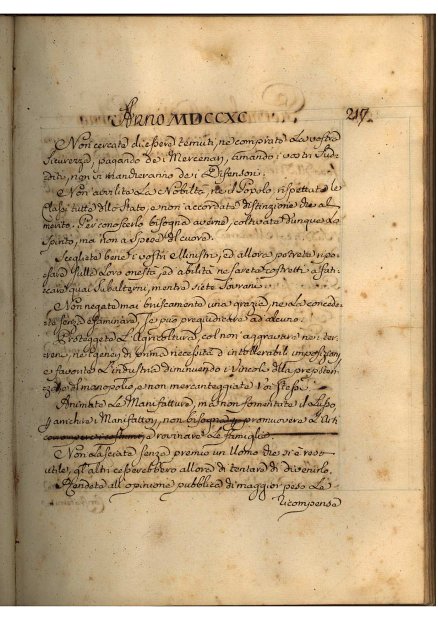 Anno MDCCXC
217.
Non cercate di essere temuti, ne comprate la vostra
sicurezza, pagando dei Mercenarj, amando i vostri Sud-
diti, non vi mancheranno dei Difensori.
Non avvilite la Nobiltà, ne il Popolo, rispettate le
Classi tutte dello Stato, e non accordate distinzione che al
merito. Per conoscerlo bisogna averne, coltivate dunque lo
spirito, ma non a spese del cuore.
Scegliete bene i vostri Ministri, ed allora potrete ripo-
sare sulla loro onestà, ed abilità ne sarete costretti a fati-
care quai Subalterni, mentre siete Sovrani.
Non negate mai bruscamente una grazia, ne la concede-
te senza esaminare se può pregiudicare ad alcuno.
Proteggete l'Agricoltura, col non aggravare nei ter-
reni, ne i generi di prima necessità d'intollerabili imposizioni
e favorite l'Industria diminuendo i vincoli della prepoten-
za, e del monopolio, e non mercanteggiate Voi stessi.
Animate le Manifatture, ma non fomentate il Lusso
arrichire i Manifattori, non bisogna promuovere le Arti
e rovinare le famiglie.
Non lasciate senza premio un Uomo che si è reso
utile, gl'altri cesserebbero allora di tentare di divenirlo.
Rendete all'opinione pubblica di maggior peso la
ricompensa